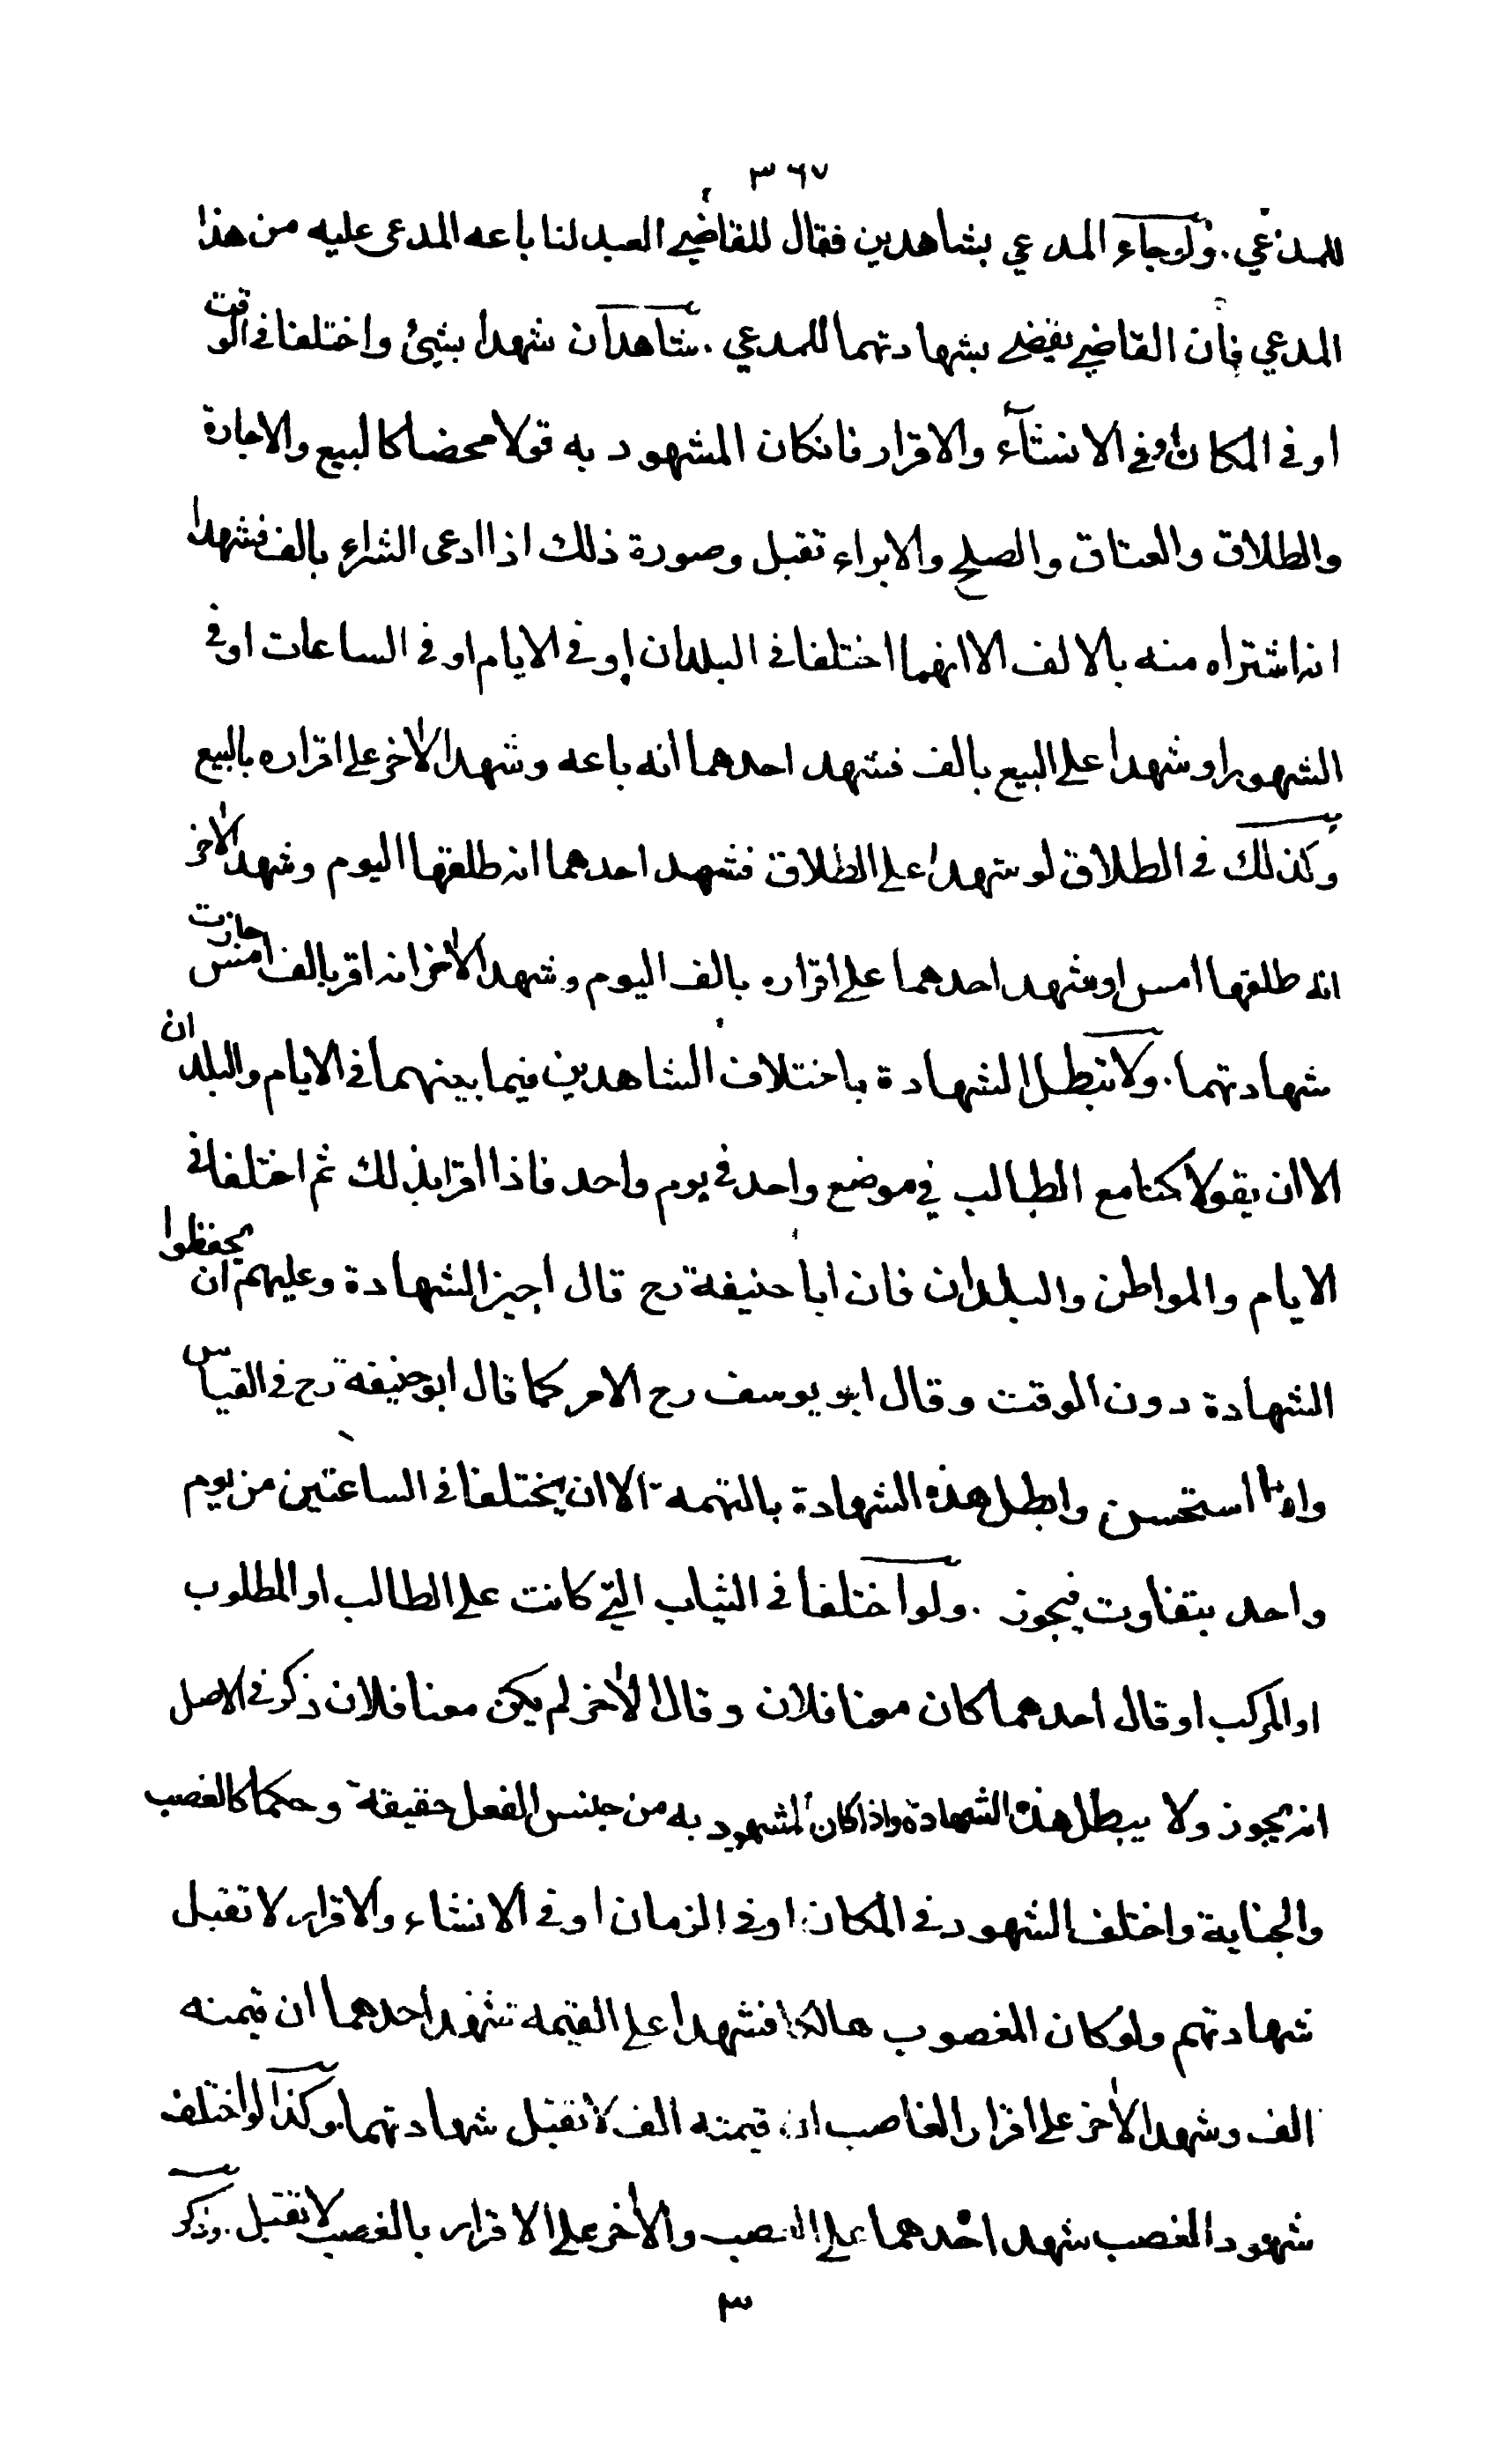 ٣٦٧
للمدعي . ولوجاء المدعي بشاهدين فقال للقاضي العبد لنا باعه المدعى عليه من هذا
المدعي فان القاضي يقضي بشهادتهما للمدعي . شاهدان شهدا بشيئ واختلفا في الوقت
او في المكان او في الانشآء والاقرار فانكان المشهود به قولا محضا كالبيع والاجارة
والطلاق والعتاق والصلح والابراء تقبل وصورة ذلك اذا ادعى الشراء بالف فشهدا
انه اشتراه منه بالالف الا انهما اختلفا في البلدان او في الايام او في الساعات او في
الشهور او شهدا على البيع بالف فشهد احدهما انه باعه وشهد الاخر على اقراره بالبيع
وكذلك في الطلاق لو شهدا على الطلاق فشهد احدهما انه طلقها اليوم وشهد الاخر
انه طلقها امس او شهد احدهما على اقراره بالف اليوم وشهد الاخر انه اقر بالف امس جازت
شهادتهما . ولا تبطل الشهادة باختلاف الشاهدين فيما بينهما في الايام والبلدان
الا ان يقولا كنا مع الطالب في موضع واحد في يوم واحد فاذا اقرا بذلك ثم اختلفا في
الايام والمواطن والبلدان فان ابا حنيفة رح قال اجيز الشهادة وعليهم ان يحفظوا
الشهادة دون الوقت وقال ابو يوسف رح الامر كما قال ابو حنيفة رح في القياس
وانا استحسن وابطل هذه الشهادة بالتهمة الا ان يختلفا في الساعتين من يوم
واحد بتفاوت فيجوز . ولو اختلفا في الثياب التي كانت على الطالب او المطلوب
او المركب او قال احدهما كان معنا فلان وقال الاخر لم يكن معنا فلان ذكر في الاصل
انه يجوز ولا يبطل هذه الشهادة واذا كان المشهود به من جنس الفعل حقيقة وحكما كالغصب
والجناية واختلف الشهود في المكان او في الزمان او في الانشاء والاقرار لا تقبل
شهادتهم ولو كان المغصوب هالكا فشهدا على القيمة شهد احدهما ان قيمته
الف وشهد الاخر على اقرار الغاصب ان قيمته الف لا تقبل شهادتهما وكذا لو اختلف
شهود الغصب شهد احدهما على الغصب والاخر على الاقرار بالغصب لا تقبل . وذكر
٣